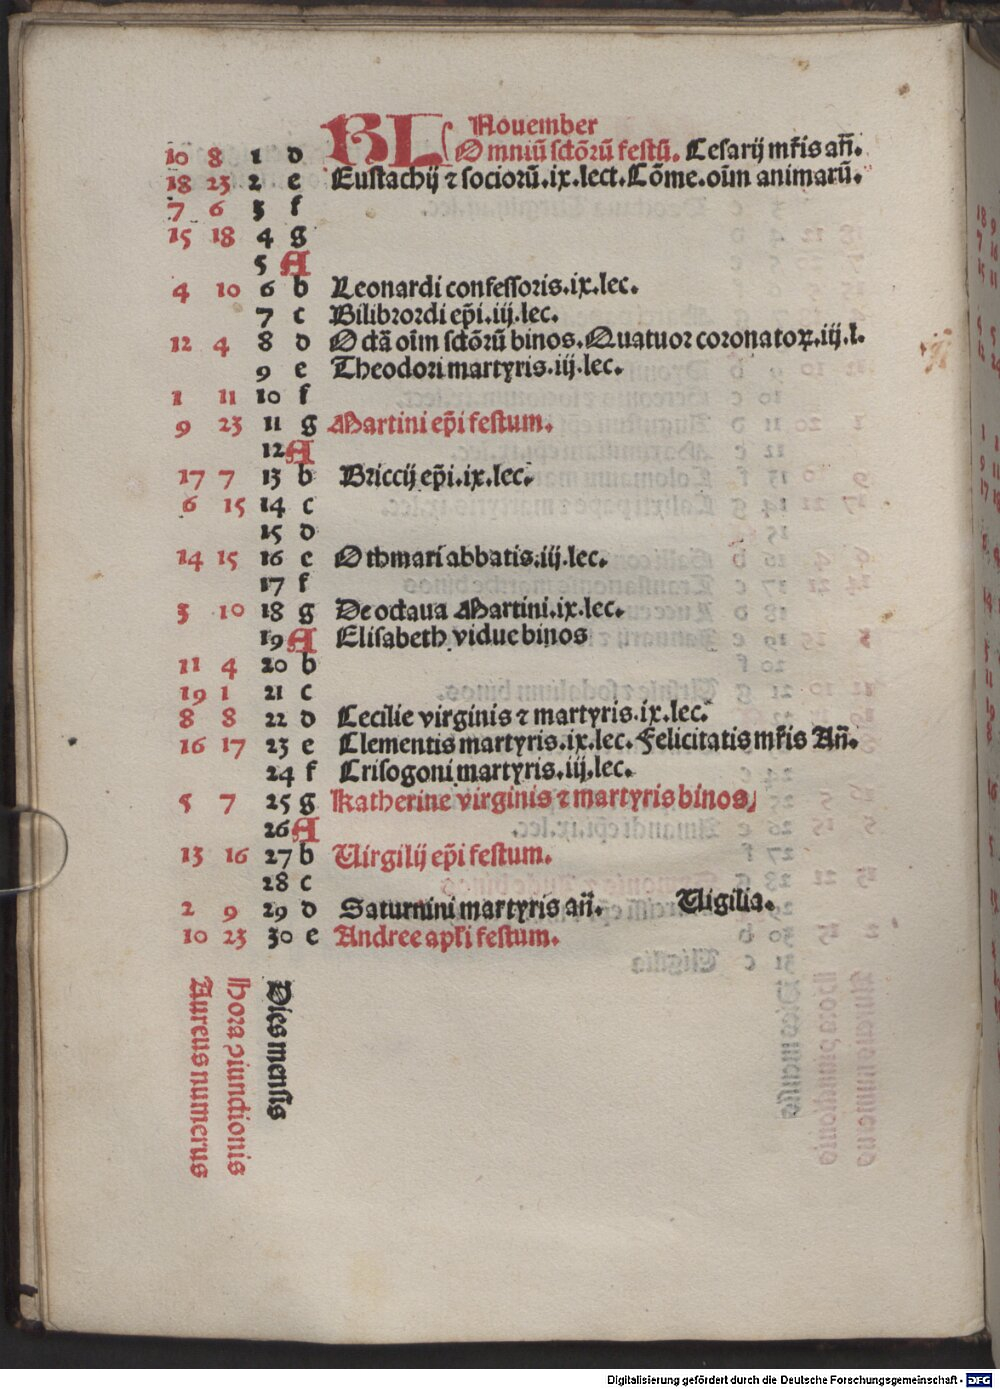 KL Nouember
10 8 1 d Omniū sctōrū festū. Cesarij mr̄is an̄.
18 23 2 e Eustachij ⁊ sociorū.ix.lect.Cōme.oīm animarū.
7 6 3 f
15 18 4 g
5 A
4 10 6 b Leonardi confessoris.ix.lec.
7 c Bilibrordi ep̄i.iij.lec.
12 4 8 d Octā oīm sctōrū binos.Quatuor coronatoꝝ.iij.l.
9 e Theodori martyris.iij.lec.
1 11 10 f
9 23 11 g Martini ep̄i festum.
12 A
17 7 13 b Briccij ep̄i.ix.lec.
6 15 14 c
15 d
14 15 16 e Othmari abbatis.iij.lec.
17 f
3 10 18 g De octaua Martini.ix.lec.
19 A Elisabeth vidue binos
11 4 20 b
19 1 21 c
8 8 22 d Cecilie virginis ⁊ martyris.ix.lec.
16 17 23 e Clementis martyris.ix.lec.Felicitatis mr̄is An̄.
24 f Crisogoni martyris.iij.lec.
5 7 25 g Katherine virginis ⁊ martyris binos/
26 A
13 16 27 b Virgilij ep̄i festum.
28 c
2 9 29 d Saturnini martyris an̄. Vigilia.
10 23 30 e Andree apl̄i festum.
Aureus numerus
Hora ꝯiunctionis
Dies mensis
Digitalisierung gefördert durch die Deutsche Forschungsgemeinschaft - DFG